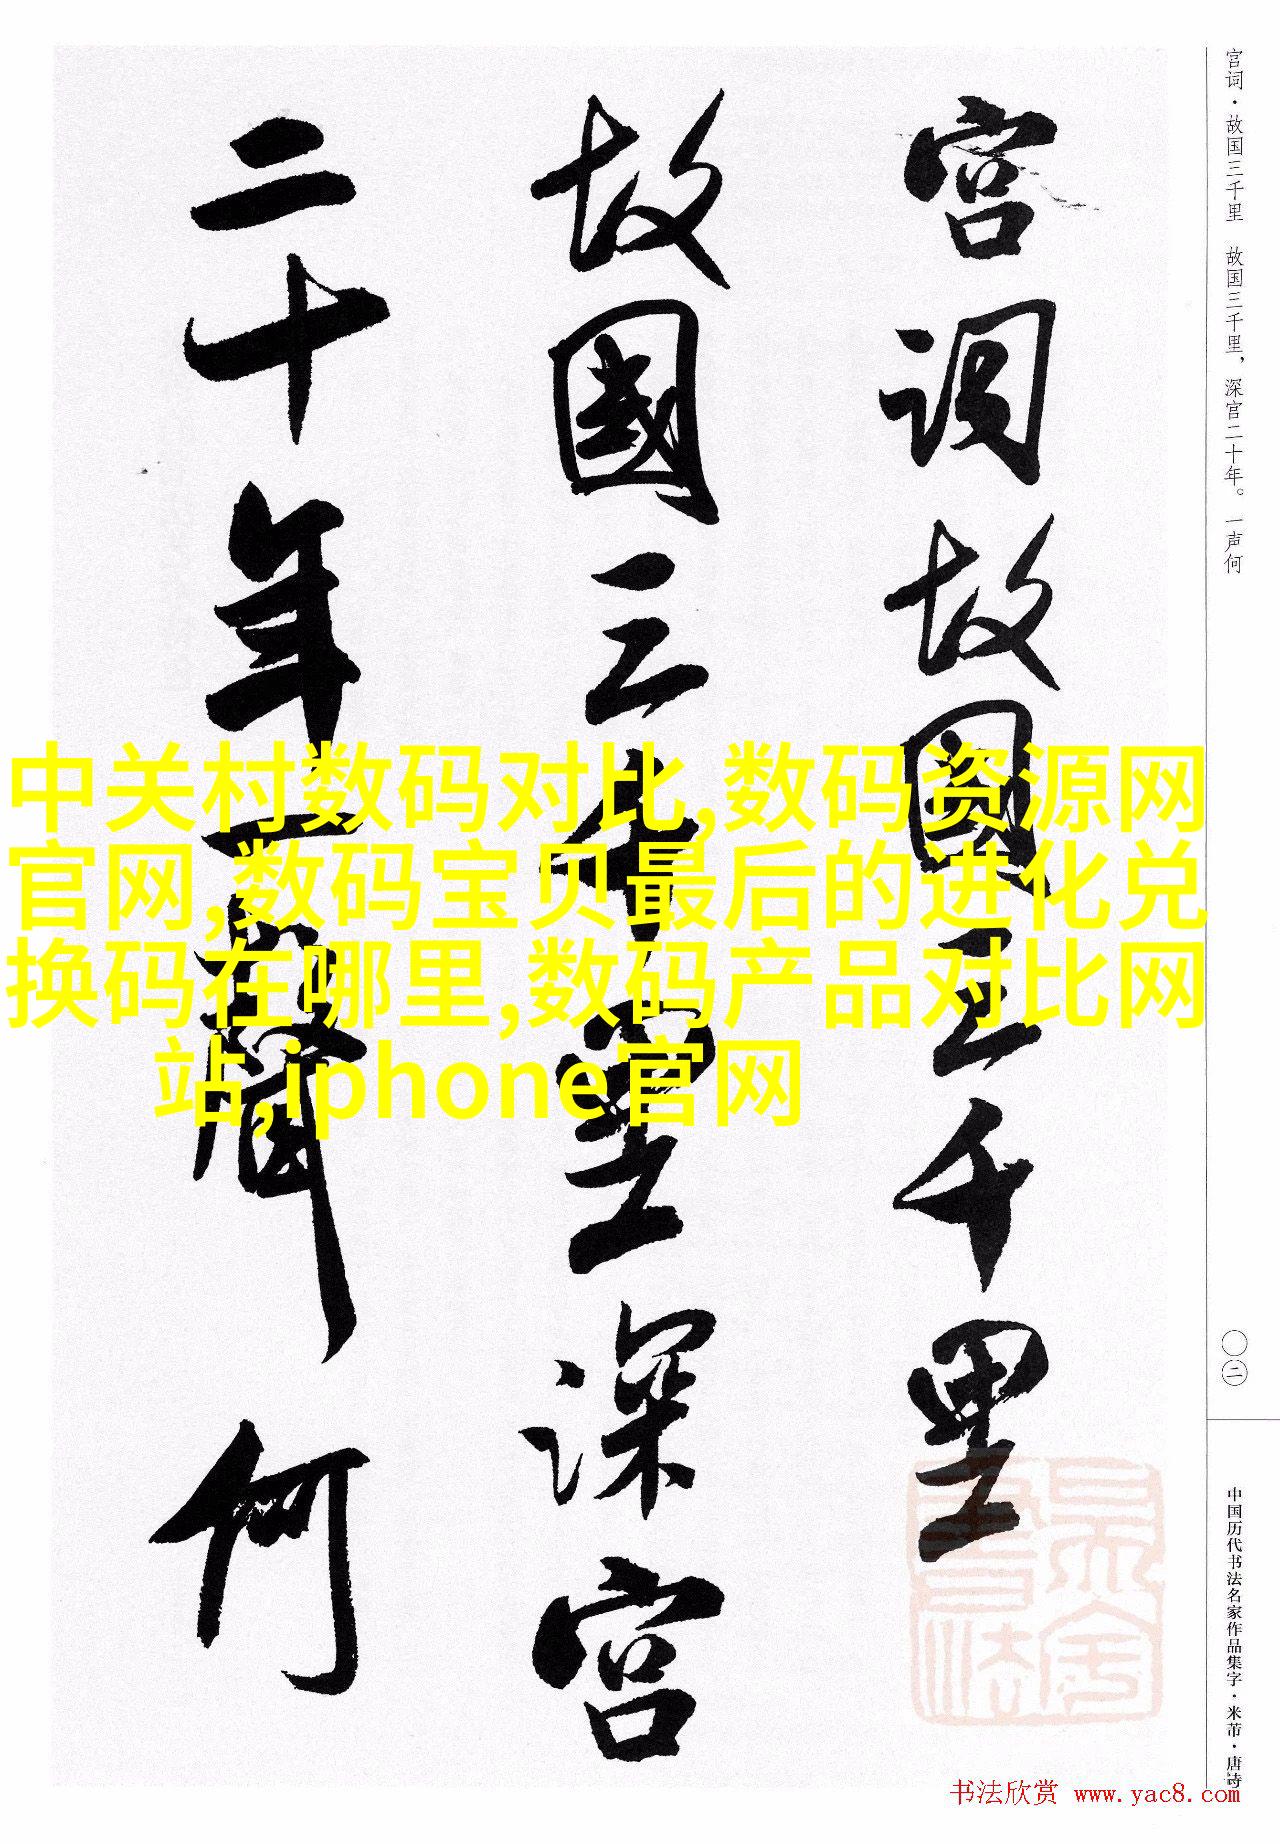 宫词故國三千里
故國三千里深宫
二十年一聲何
宫词·故国三千里 故国三千里，深宫二十年。一声何
〇二
中国历代书法名家作品集字·米芾·唐诗
中关村数码对比,数码资源网
官网,数码宝贝最后的进化兑
换码在哪里,数码产品对比网
站,iphone官网
书法欣赏 www.yac8.com